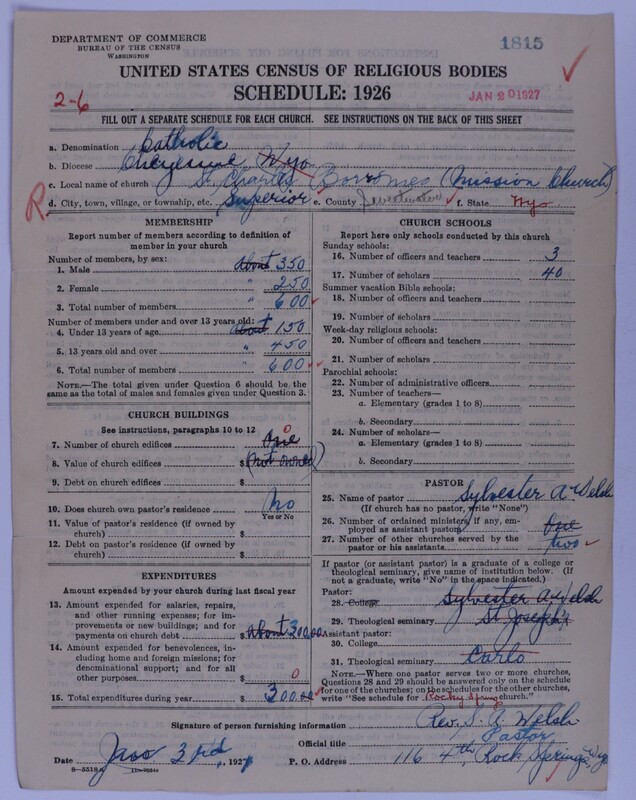 DEPARTMENT OF COMMERCE
BUREAU OF THE CENSUS
WASHINGTON
1815
UNITED STATES CENSUS OF RELIGIOUS BODIES
SCHEDULE: 1926
2-6
JAN 20 1927
FILL OUT A SEPARATE SCHEDULE FOR EACH CHURCH. SEE INSTRUCTIONS ON THE BACK OF THIS SHEET
a. Denomination Catholic
b. Diocese Cheyenne Wyo
c. Local name of church St. Charles Borromeo (Mission Church)
R d. City, town, village, or township, etc. Superior e. County Sweetwater f. State Wyo
MEMBERSHIP
Report number of members according to definition of
member in your church
Number of members, by sex:
1. Male about 350
2. Female " 250
3. Total number of members " 600
Number of members under and over 13 years old:
4. Under 13 years of age about 150
5. 13 years old and over " 450
6. Total number of members " 600
NOTE.—The total given under Question 6 should be the
same as the total of males and females given under Question 3.
CHURCH BUILDINGS
See instructions, paragraphs 10 to 12
7. Number of church edifices one 0
8. Value of church edifices $ (not owned)
9. Debt on church edifices $
10. Does church own pastor's residence No
Yes or No
11. Value of pastor's residence (if owned by
church) $
12. Debt on pastor's residence (if owned by
church) $
EXPENDITURES
Amount expended by your church during last fiscal year
13. Amount expended for salaries, repairs,
and other running expenses; for im-
provements or new buildings; and for
payments on church debt $ about 300.00
14. Amount expended for benevolences, in-
cluding home and foreign missions; for
denominational support; and for all
other purposes $ 0
15. Total expenditures during year $ 300.00
CHURCH SCHOOLS
Report here only schools conducted by this church
Sunday schools:
16. Number of officers and teachers 3
17. Number of scholars 40
Summer vacation Bible schools:
18. Number of officers and teachers
19. Number of scholars
Week-day religious schools:
20. Number of officers and teachers
21. Number of scholars
Parochial schools:
22. Number of administrative officers
23. Number of teachers—
a. Elementary (grades 1 to 8)
b. Secondary
24. Number of scholars—
a. Elementary (grades 1 to 8)
b. Secondary
PASTOR
25. Name of pastor Sylvester A Welsh
(If church has no pastor, write "None")
26. Number of ordained ministers, if any, em-
ployed as assistant pastors one
27. Number of other churches served by the
pastor or his assistants two
If pastor (or assistant pastor) is a graduate of a college or
theological seminary, give name of institution below. (If
not a graduate, write "No" in the space indicated.)
Pastor:
28. College Sylvester A Welsh
29. Theological seminary St Joseph's
Assistant pastor:
30. College
31. Theological seminary Carlo
NOTE.—Where one pastor serves two or more churches,
Questions 28 and 29 should be answered only on the schedule
for one of the churches; on the schedules for the other churches,
write "See schedule for church."
Signature of person furnishing information Rev. S. A. Welsh
Official title Pastor
Date Jan 3rd, 1927 P. O. Address 116 4th, Rock Springs, Wyo
8-5518